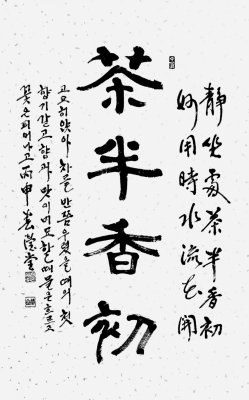 靜坐處茶半香初
妙用時水流花開
茶半香初
고요히 앉아 차를 반쯤 우렸을 때의 첫
향기 같고 함께 맛이 미묘할 때 물은 흐르고
꽃은 피어나고 丙申